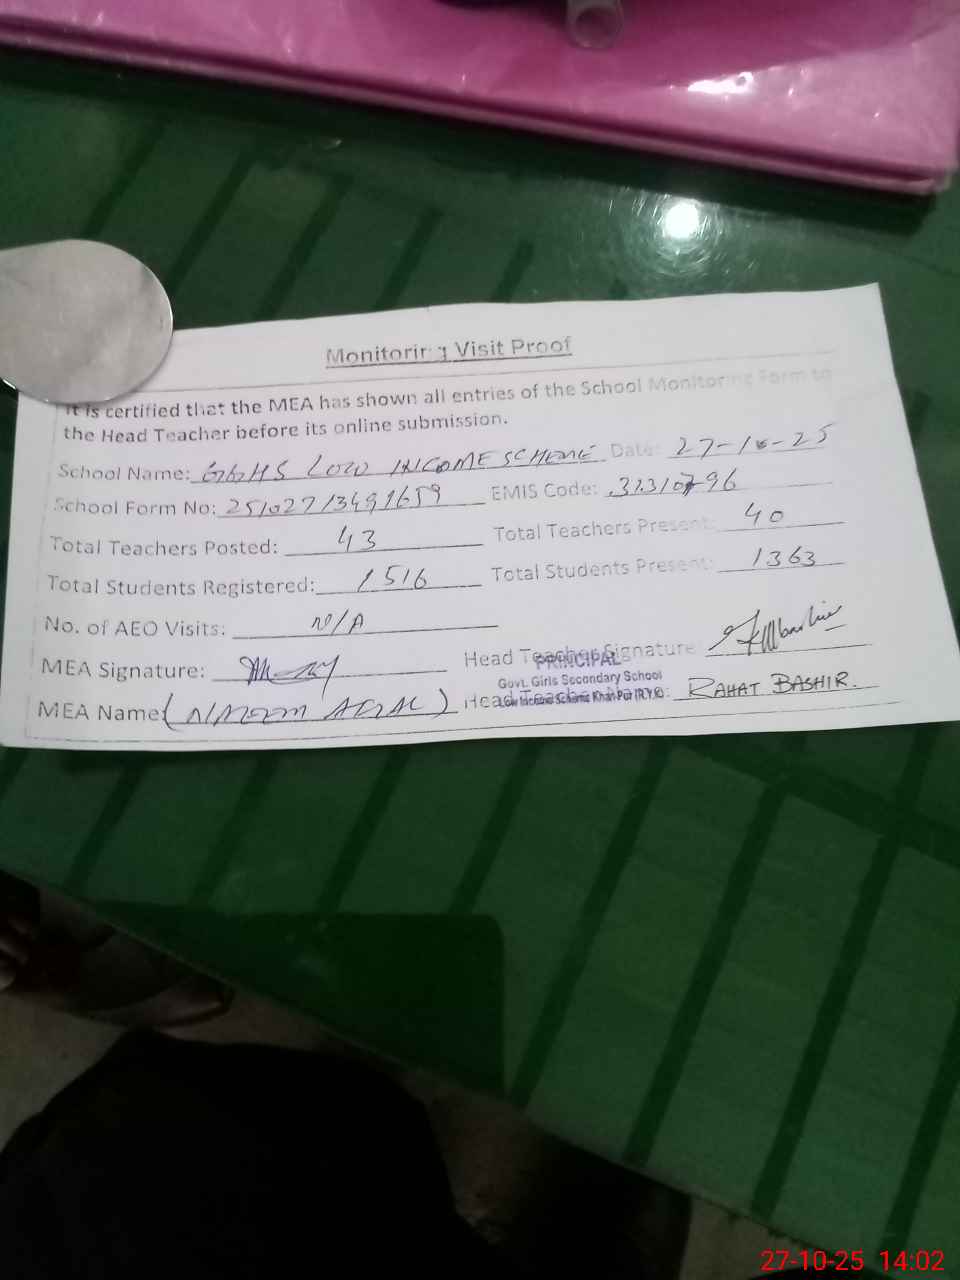 Monitoring Visit Proof
It is certified that the MEA has shown all entries of the School Monitoring Form to
the Head Teacher before its online submission.
School Name: GGHS LOW INCOME SCHEME Date: 27-10-25
School Form No: 25102713491659 EMIS Code: 31310796
Total Teachers Posted: 43 Total Teachers Present: 40
Total Students Registered: 1516 Total Students Present: 1363
No. of AEO Visits: N/A
MEA Signature: Head Teacher Signature
PRINCIPAL
Govt. Girls Secondary School
Low Income Scheme Khan Pur (R.Y.K)
MEA Name( ) Head Teacher Name: RAHAT BASHIR.
27-10-25 14:02